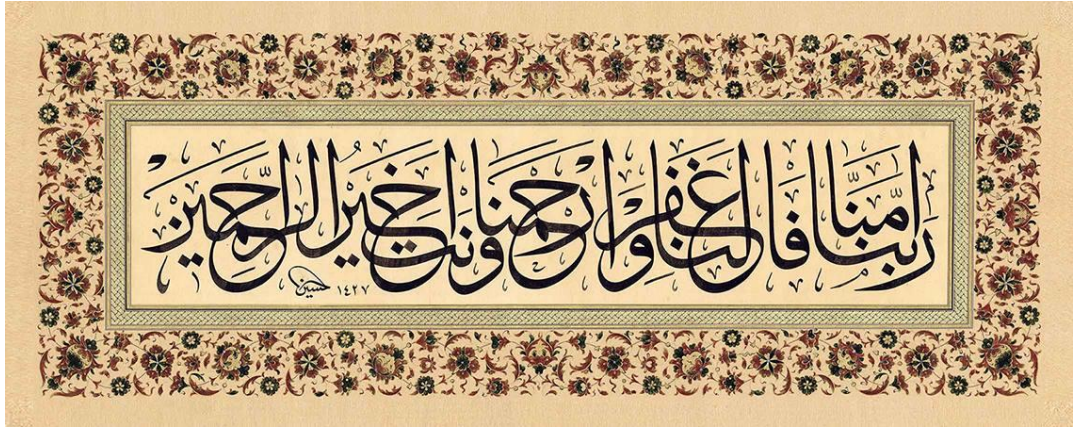 ربنا امنا فاغفر لنا وارحمنا وانت خير الرحمين
١٤٢٧